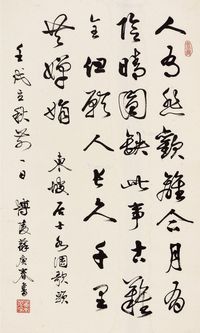 人有悲歡離合月有
陰晴圓缺此事古難
全但願人長久千里
共嬋娟 東坡居士水調歌頭
壬戌立秋前一日 博陵蘇庚春書